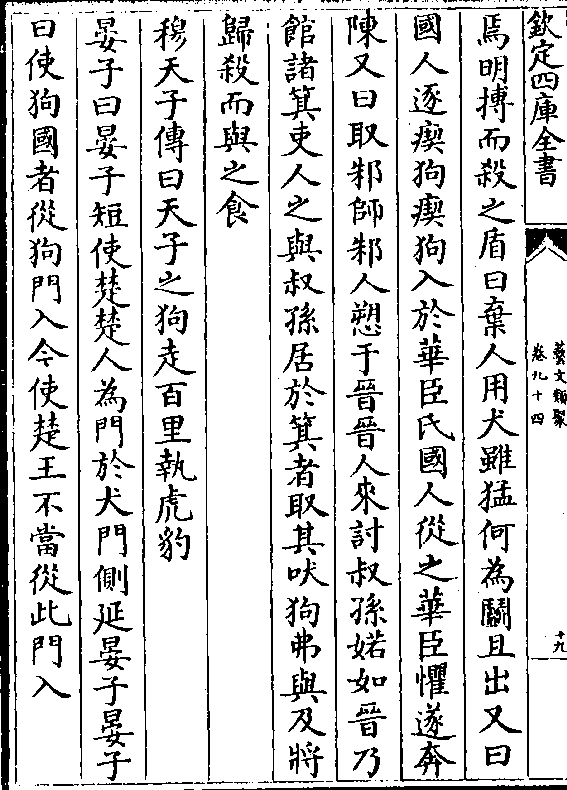 欽定四庫全書
藝文類聚
卷九十四
十九
焉明搏而殺之盾曰棄人用犬雖猛何為鬭且出又曰
國人逐瘈狗瘈狗入於華臣氏國人從之華臣懼遂奔
陳又曰取邾師邾人愬于晉晉人來討叔孫婼如晉乃
館諸箕吏人之與叔孫居於箕者取其吠狗弗與及將
歸殺而與之食
穆天子傳曰天子之狗走百里執虎豹
晏子曰晏子短使楚楚人為門於犬門側延晏子晏子
曰使狗國者從狗門入今使楚王不當從此門入